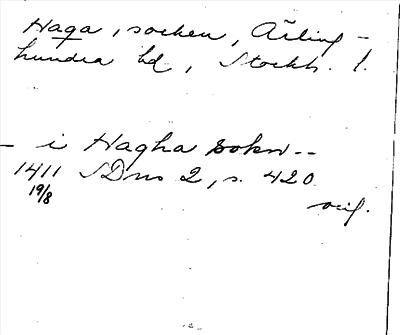 Haga, socken, Ärling-
hundra hd, Stockh. l.
- i Hagha sokn --
1411 SDns 2, s. 420
19/8
orig.